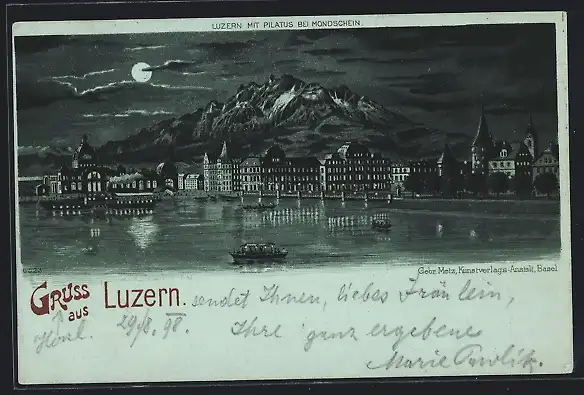 LUZERN MIT PILATUS BEI MONDSCHEIN.
Gebr. Metz, Kunstverlags-Anstalt, Basel
GRUSS aus Luzern. sendet Ihnen, liebes Fräulein,
29/8. 98. Ihre ganz ergebene
Marie